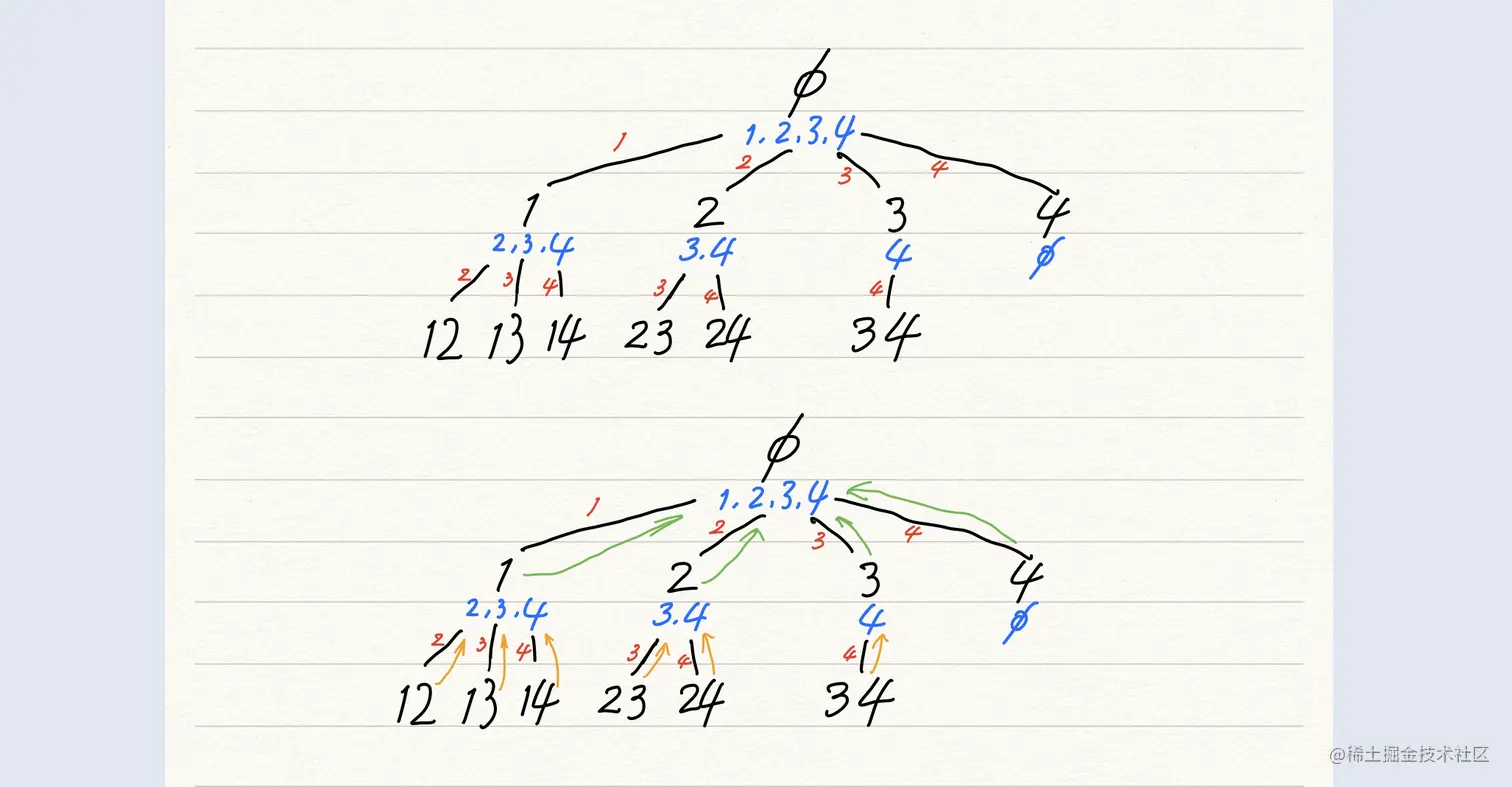 ∅
1.2.3.4
1 2 3 4
1 2 3 4
2,3.4 3.4 4 ∅
2 3 4 3 4 4
12 13 14 23 24 34
∅
1.2.3.4
1 2 3 4
1 2 3 4
2,3.4 3.4 4 ∅
2 3 4 3 4 4
12 13 14 23 24 34
@稀土掘金技术社区